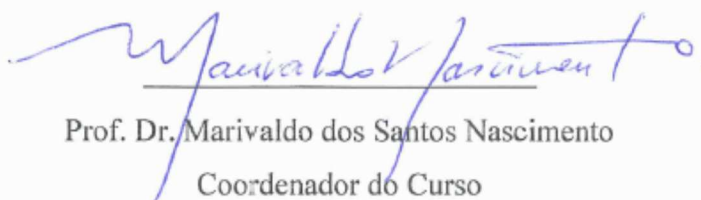 Marivaldo Nascimento
Prof. Dr. Marivaldo dos Santos Nascimento
Coordenador do Curso